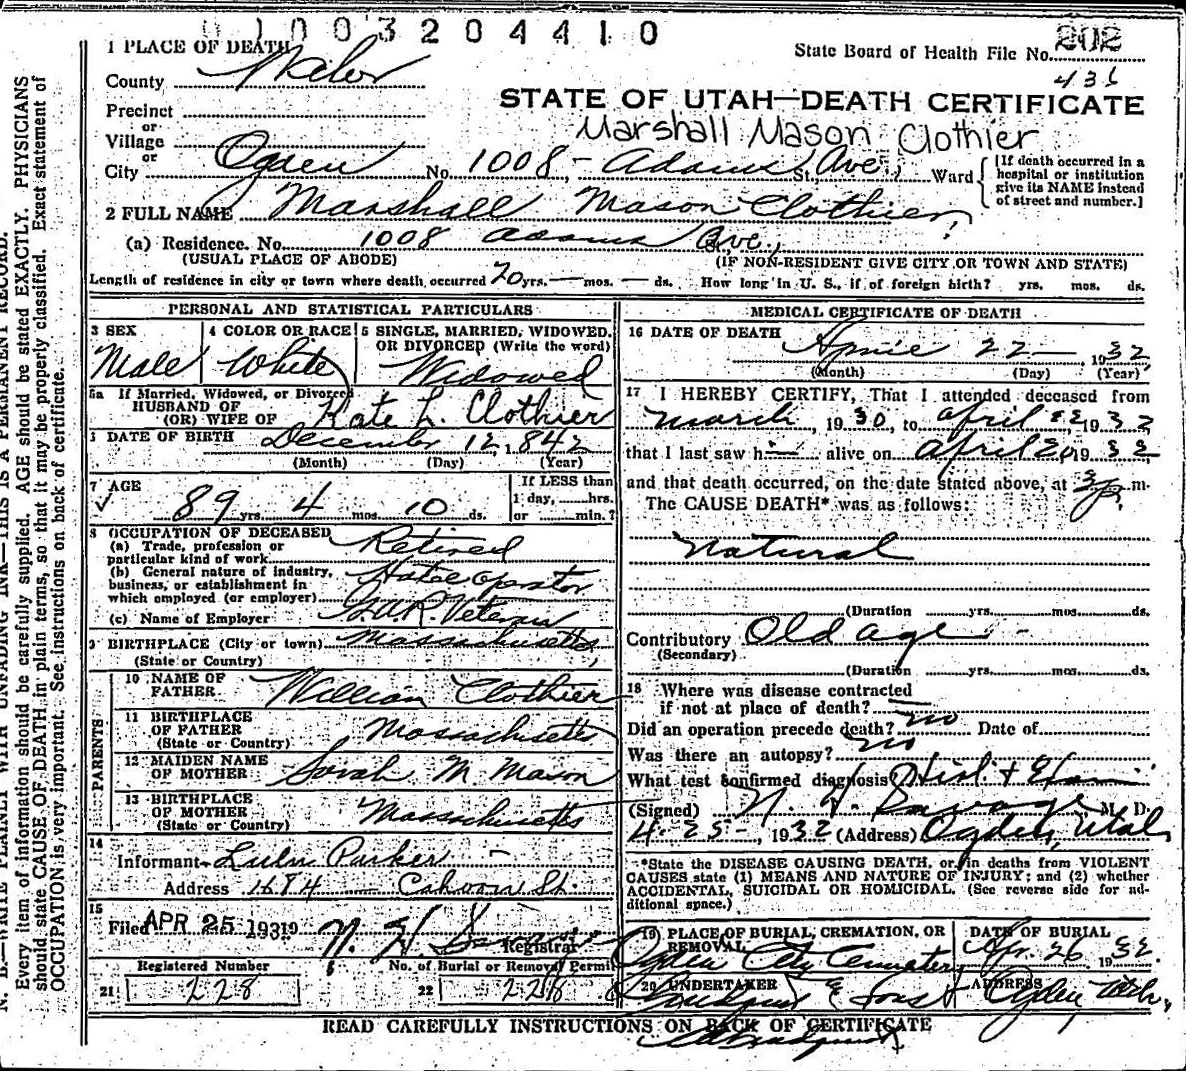 01003204410
1 PLACE OF DEATH
State Board of Health File No. 202
436
County Weber
STATE OF UTAH—DEATH CERTIFICATE
Precinct
Marshall Mason Clothier
or
Village
or
City Ogden No. 1008 - Adams St., Ave., Ward
[If death occurred in a
hospital or institution
give its NAME instead
of street and number.]
2 FULL NAME Marshall Mason Clothier
(a) Residence. No. 1008 Adams Ave.,
(USUAL PLACE OF ABODE) (IF NON-RESIDENT GIVE CITY OR TOWN AND STATE)
Length of residence in city or town where death occurred 20 yrs. — mos. — ds. How long in U. S., if of foreign birth? yrs. mos. ds.
PERSONAL AND STATISTICAL PARTICULARS
3 SEX
Male
4 COLOR OR RACE
White
5 SINGLE, MARRIED, WIDOWED,
OR DIVORCED (Write the word)
Widowed
5a If Married, Widowed, or Divorced
HUSBAND OF
(OR) WIFE OF Kate L. Clothier
6 DATE OF BIRTH December 12, 1842
(Month) (Day) (Year)
7 AGE
89 yrs. 4 mos. 10 ds.
If LESS than
1 day, hrs.
or min.?
8 OCCUPATION OF DECEASED
(a) Trade, profession or
particular kind of work Retired
(b) General nature of industry,
business, or establishment in
which employed (or employer) Hotel operator
(c) Name of Employer G.A.R. Veteran
9 BIRTHPLACE (City or town) Massachusetts,
(State or Country)
PARENTS
10 NAME OF
FATHER William Clothier
11 BIRTHPLACE
OF FATHER Massachusetts
(State or Country)
12 MAIDEN NAME
OF MOTHER Sarah M. Mason
13 BIRTHPLACE
OF MOTHER Massachusetts
(State or Country)
14
Informant Lulu Parker
Address 1684 St.
15
Filed APR 25 1931 19 N. H. Savage
Registrar
Registered Number No. of Burial or Removal Permit
21 228 22 228
MEDICAL CERTIFICATE OF DEATH
16 DATE OF DEATH April 22 1932
(Month) (Day) (Year)
17 I HEREBY CERTIFY, That I attended deceased from
March, 1930, to April 22 1932
that I last saw h alive on April 20 1932
and that death occurred, on the date stated above, at 3 P. m.
The CAUSE DEATH* was as follows:
Natural
(Duration yrs. mos. ds.
Contributory Old age -
(Secondary)
(Duration yrs. mos. ds.
18 Where was disease contracted
if not at place of death?
Did an operation precede death? no Date of
Was there an autopsy? no
What test confirmed diagnosis? Hist. + Exam
(Signed) N. H. Savage M. D.
4-25-, 1932 (Address) Ogden, Utah
*State the DISEASE CAUSING DEATH, or, in deaths from VIOLENT
CAUSES state (1) MEANS AND NATURE OF INJURY; and (2) whether
ACCIDENTAL, SUICIDAL OR HOMICIDAL. (See reverse side for ad-
ditional space.)
19 PLACE OF BURIAL, CREMATION, OR
REMOVAL
Ogden City Cemetery
DATE OF BURIAL
Apr. 26 1932.
20 UNDERTAKER & Sons
ADDRESS
Ogden Utah,
READ CAREFULLY INSTRUCTIONS ON BACK OF CERTIFICATE
N. B.—WRITE PLAINLY WITH UNFADING INK—THIS IS A PERMANENT RECORD.
Every item of information should be carefully supplied. AGE should be stated EXACTLY. PHYSICIANS
should state CAUSE OF DEATH in plain terms, so that it may be properly classified. Exact statement of
OCCUPATION is very important. See instructions on back of certificate.